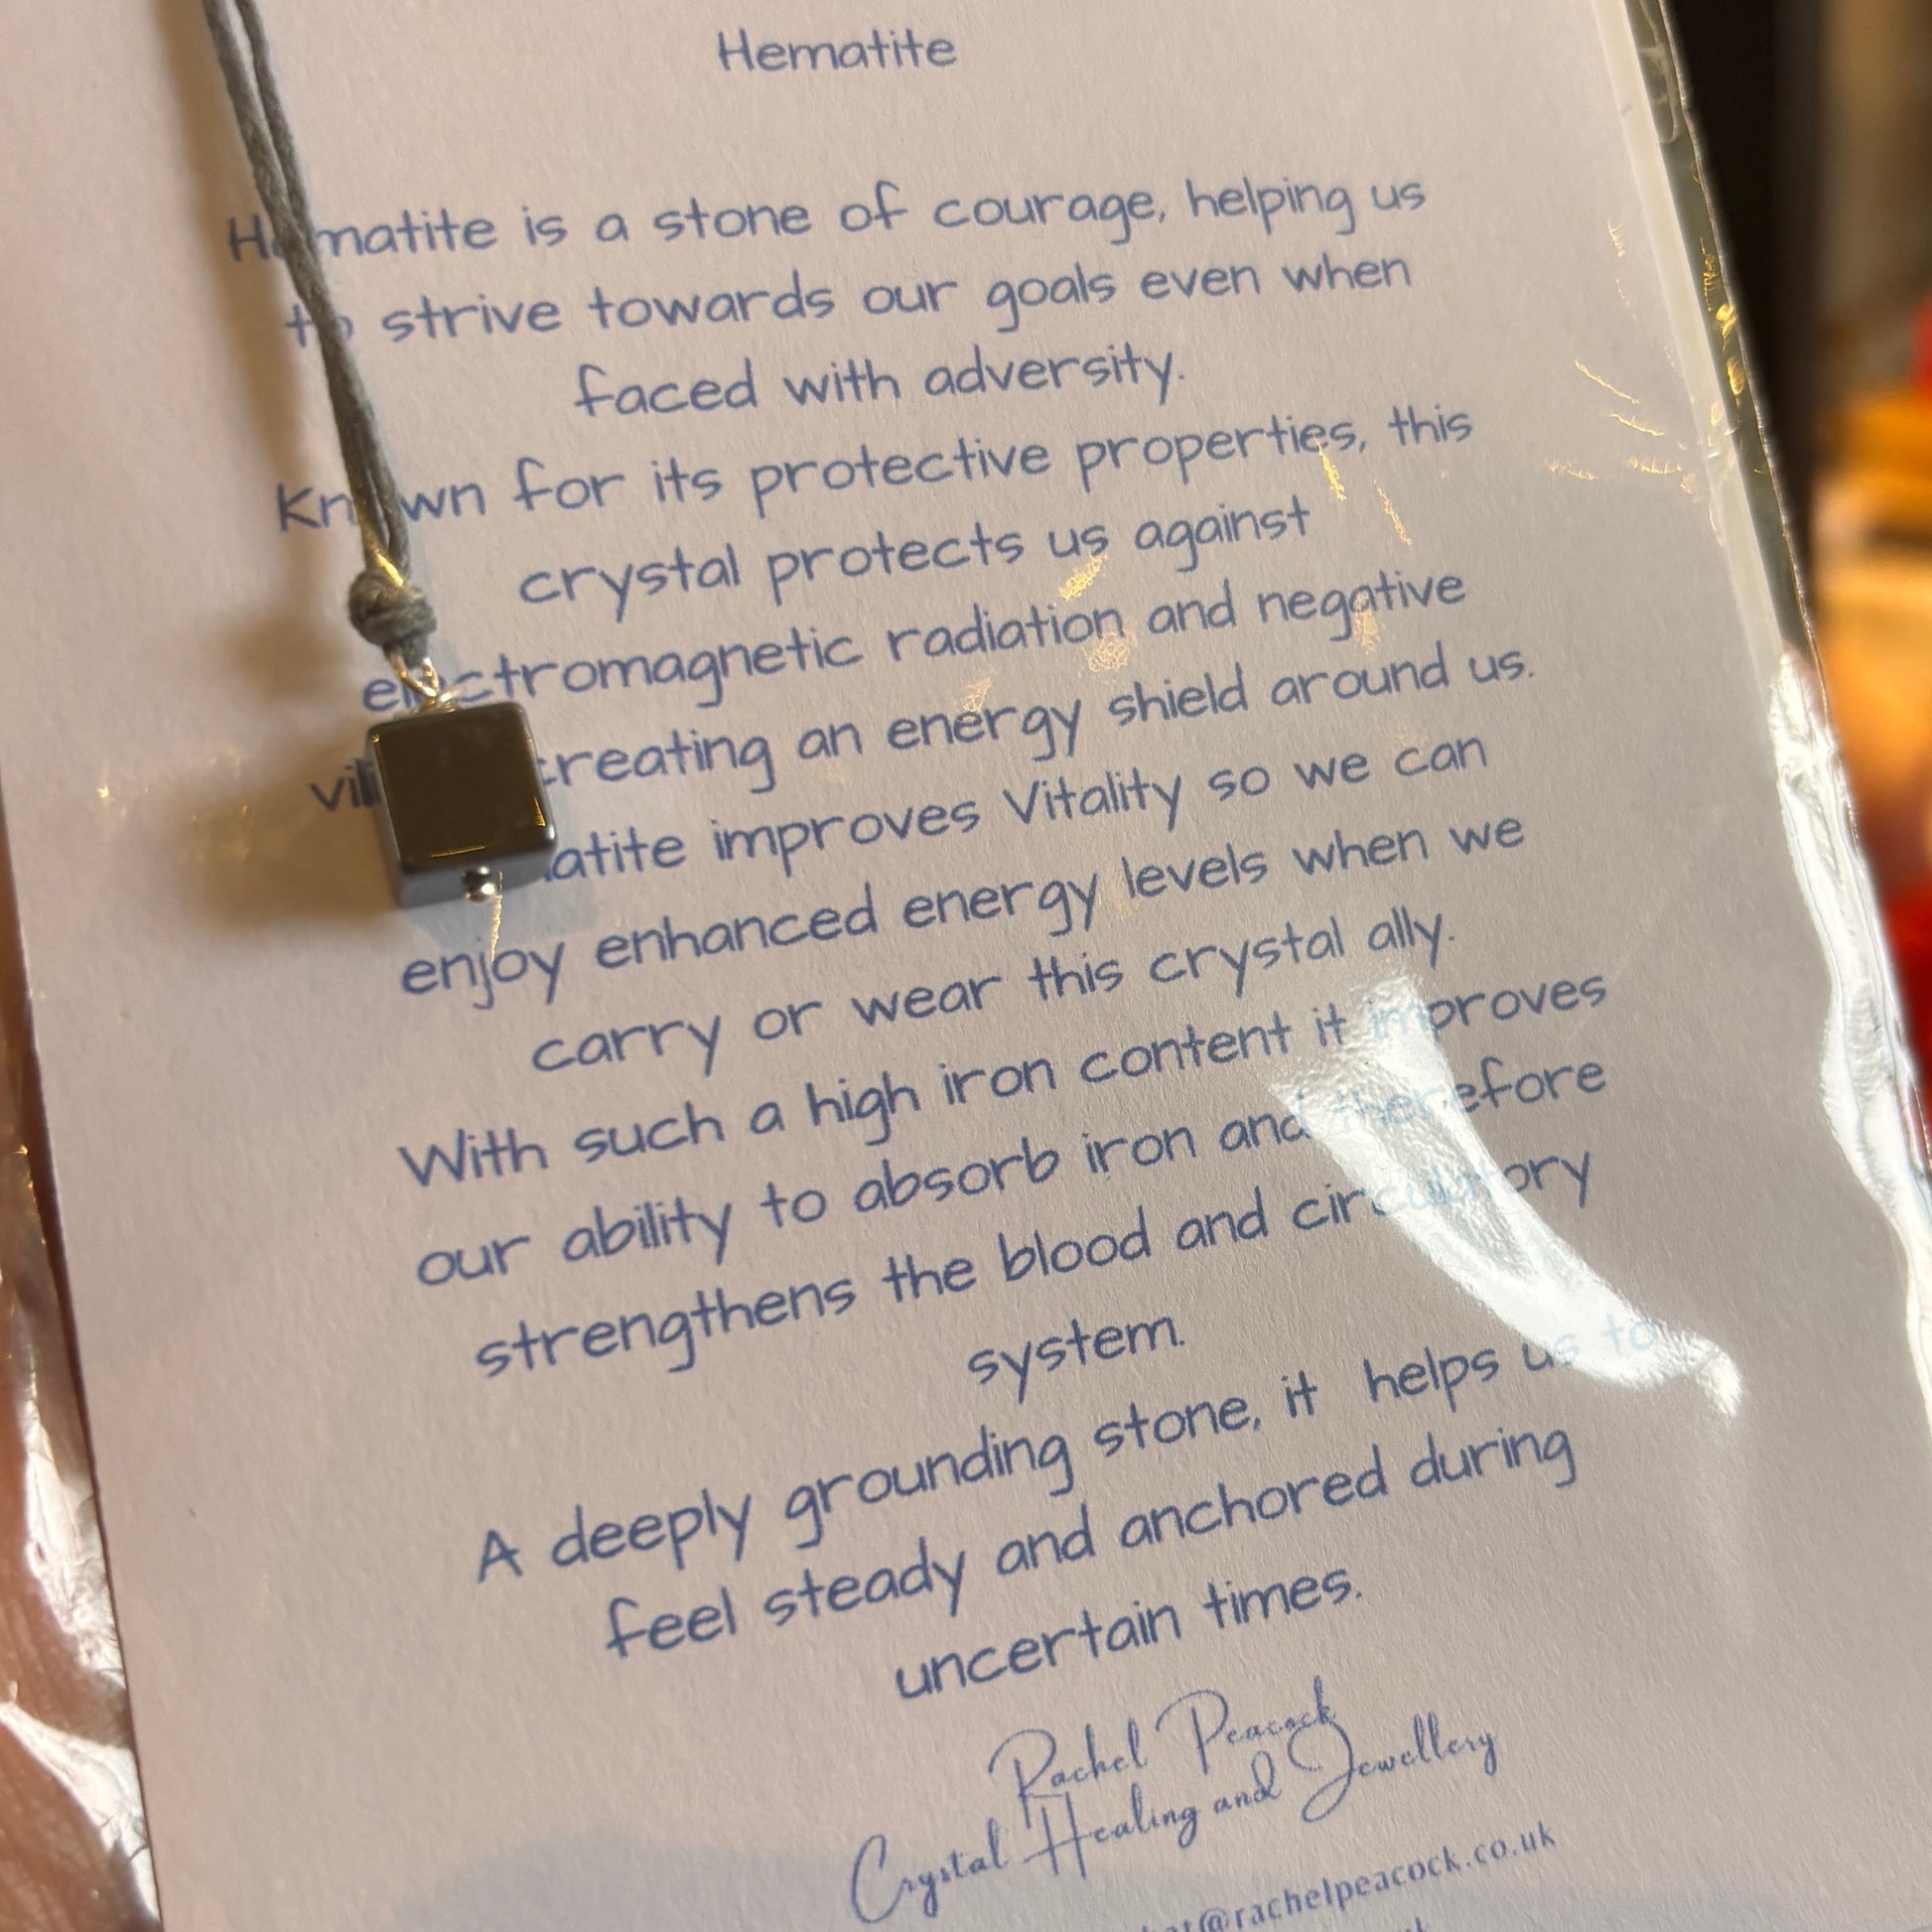 Hematite
Hematite is a stone of courage, helping us
to strive towards our goals even when
faced with adversity.
Known for its protective properties, this
crystal protects us against
electromagnetic radiation and negative
creating an energy shield around us.
improves Vitality so we can
enjoy enhanced energy levels when we
carry or wear this crystal ally.
With such a high iron content it improves
our ability to absorb iron and therefore
strengthens the blood and circulatory
system.
A deeply grounding stone, it helps us to
feel steady and anchored during
uncertain times.
Rachel Peacock
Crystal Healing and Jewellery
@rachelpeacock.co.uk